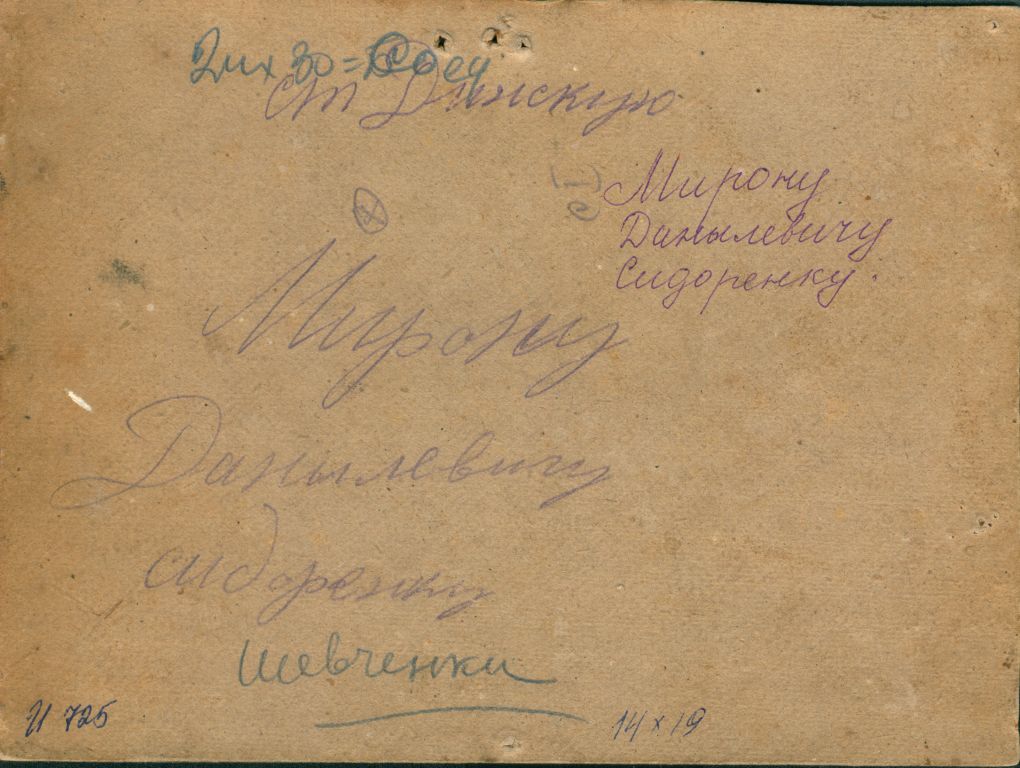 2шх 30 =
ст Динскую
Мирону
Данылевичу
Сидоренку.
Мирону
Данылевичу
сидоренку
шевченки
И 725
14 х 19